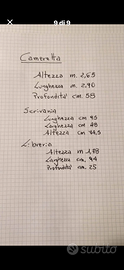 9 di 9
Cameretta
Altezza m. 2,65
Lunghezza m. 2,90
Profondità cm. 58
Scrivania
Lunghezza cm 95
Larghezza cm 48
Altezza cm 74,5
Libreria
Altezza m. 1,78
Larghezza cm. 44
Profondità cm. 25
subito